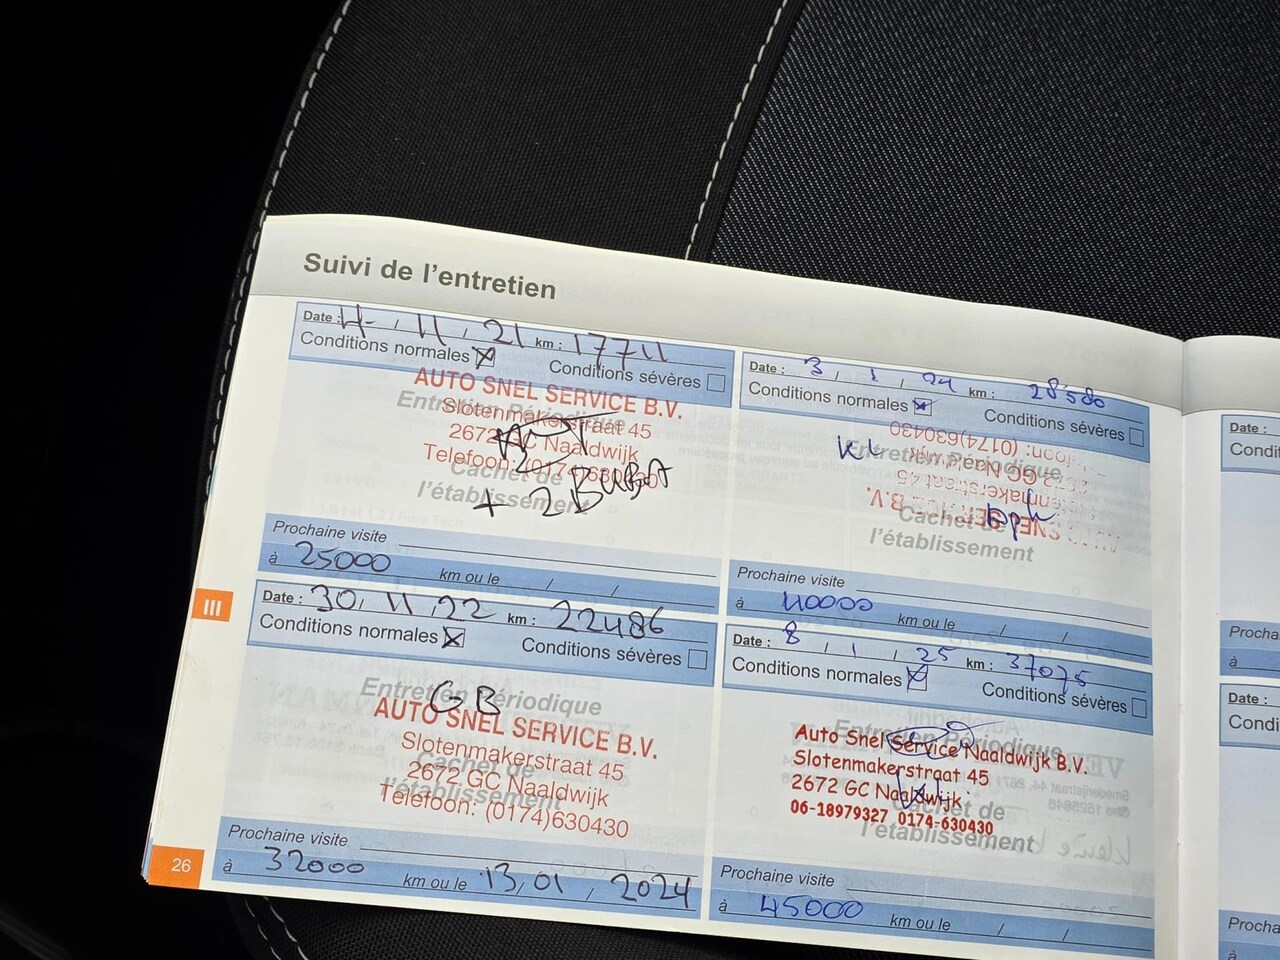 Suivi de l'entretien
Date : 11 / 11 / 21 km : 17711
Conditions normales Conditions sévères
Entretien Périodique
AUTO SNEL SERVICE B.V.
Slotenmakerstraat 45
2672 GC Naaldwijk
Telefoon: (0174)630430
Cachet de
l'établissement
+ 2 Buset
Prochaine visite
à 25000 km ou le / /
Date : 30 / 11 / 22 km : 22486
Conditions normales Conditions sévères
Entretien Périodique
GB
AUTO SNEL SERVICE B.V.
Slotenmakerstraat 45
2672 GC Naaldwijk
Cachet de
l'établissement
Telefoon: (0174)630430
Prochaine visite
à 32000 km ou le 13 / 01 / 2024
Date : 3 / 1 / 24 km : 28580
Conditions normales Conditions sévères
Entretien Périodique
KL
AUTO SNEL SERVICE B.V.
Slotenmakerstraat 45
2672 GC Naaldwijk
Telefoon: (0174)630430
Cachet de
l'établissement
Prochaine visite
à 40000 km ou le / /
Date : 8 / 1 / 25 km : 37075
Conditions normales Conditions sévères
Entretien Périodique
Auto Snel Service Naaldwijk B.V.
Slotenmakerstraat 45
2672 GC Naaldwijk
06-18979327 0174-630430
Cachet de
l'établissement
Prochaine visite
à 45000 km ou le / /
III
26
Date :
Condi
Procha
à
Date :
Condi
Procha
à